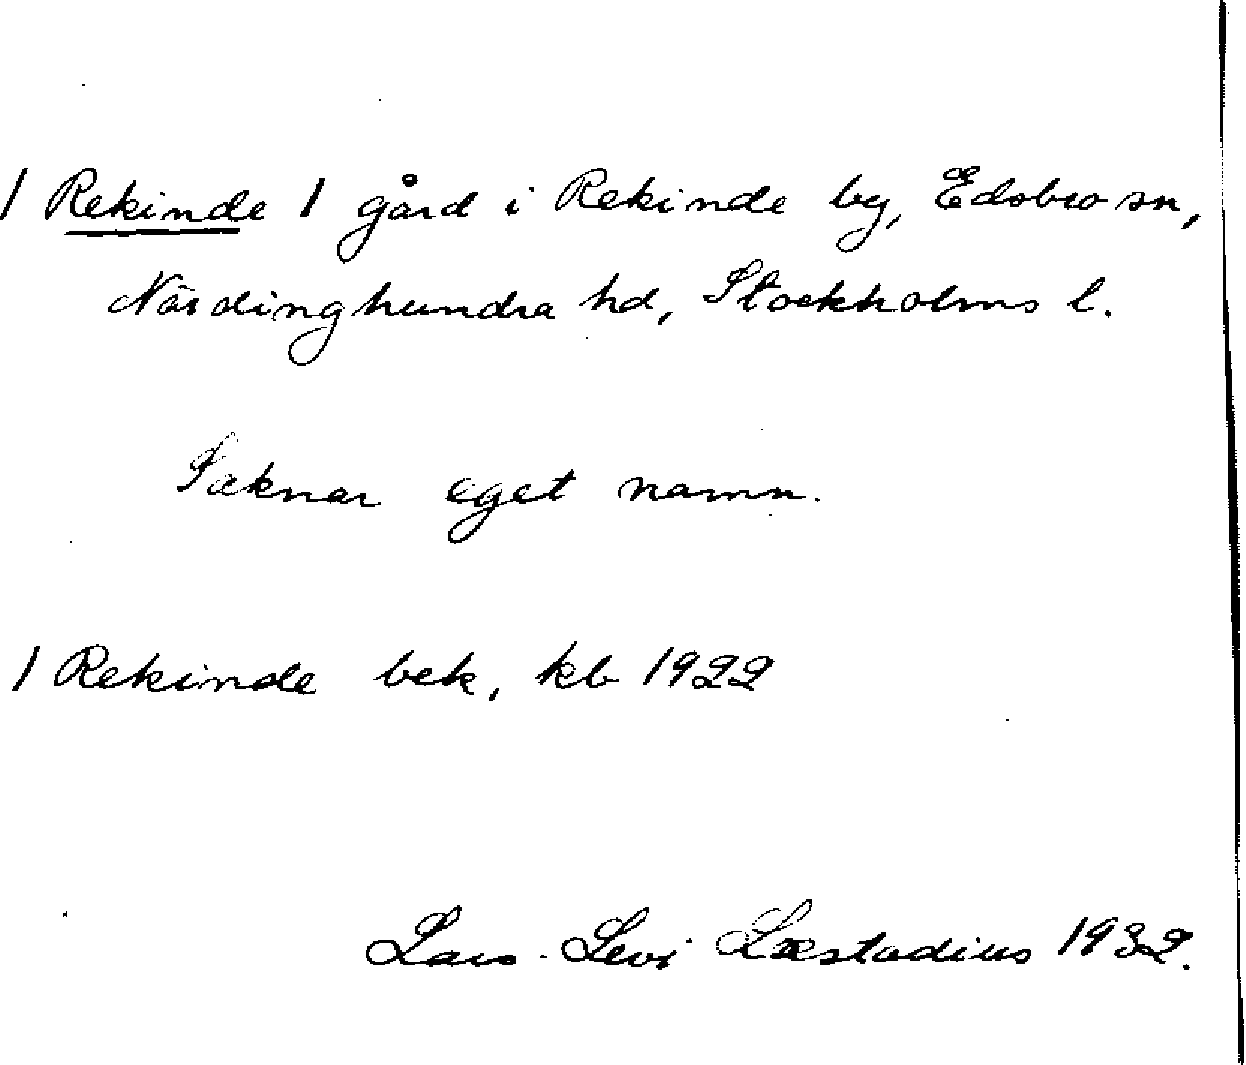 / Rekinde / gård i Rekinde by, Edsbro sn,
Närdinghundra hd, Stockholms l.
Saknar eget namn.
/ Rekinde bek, kb 1922
Lars-Levi Læstadius 1932.